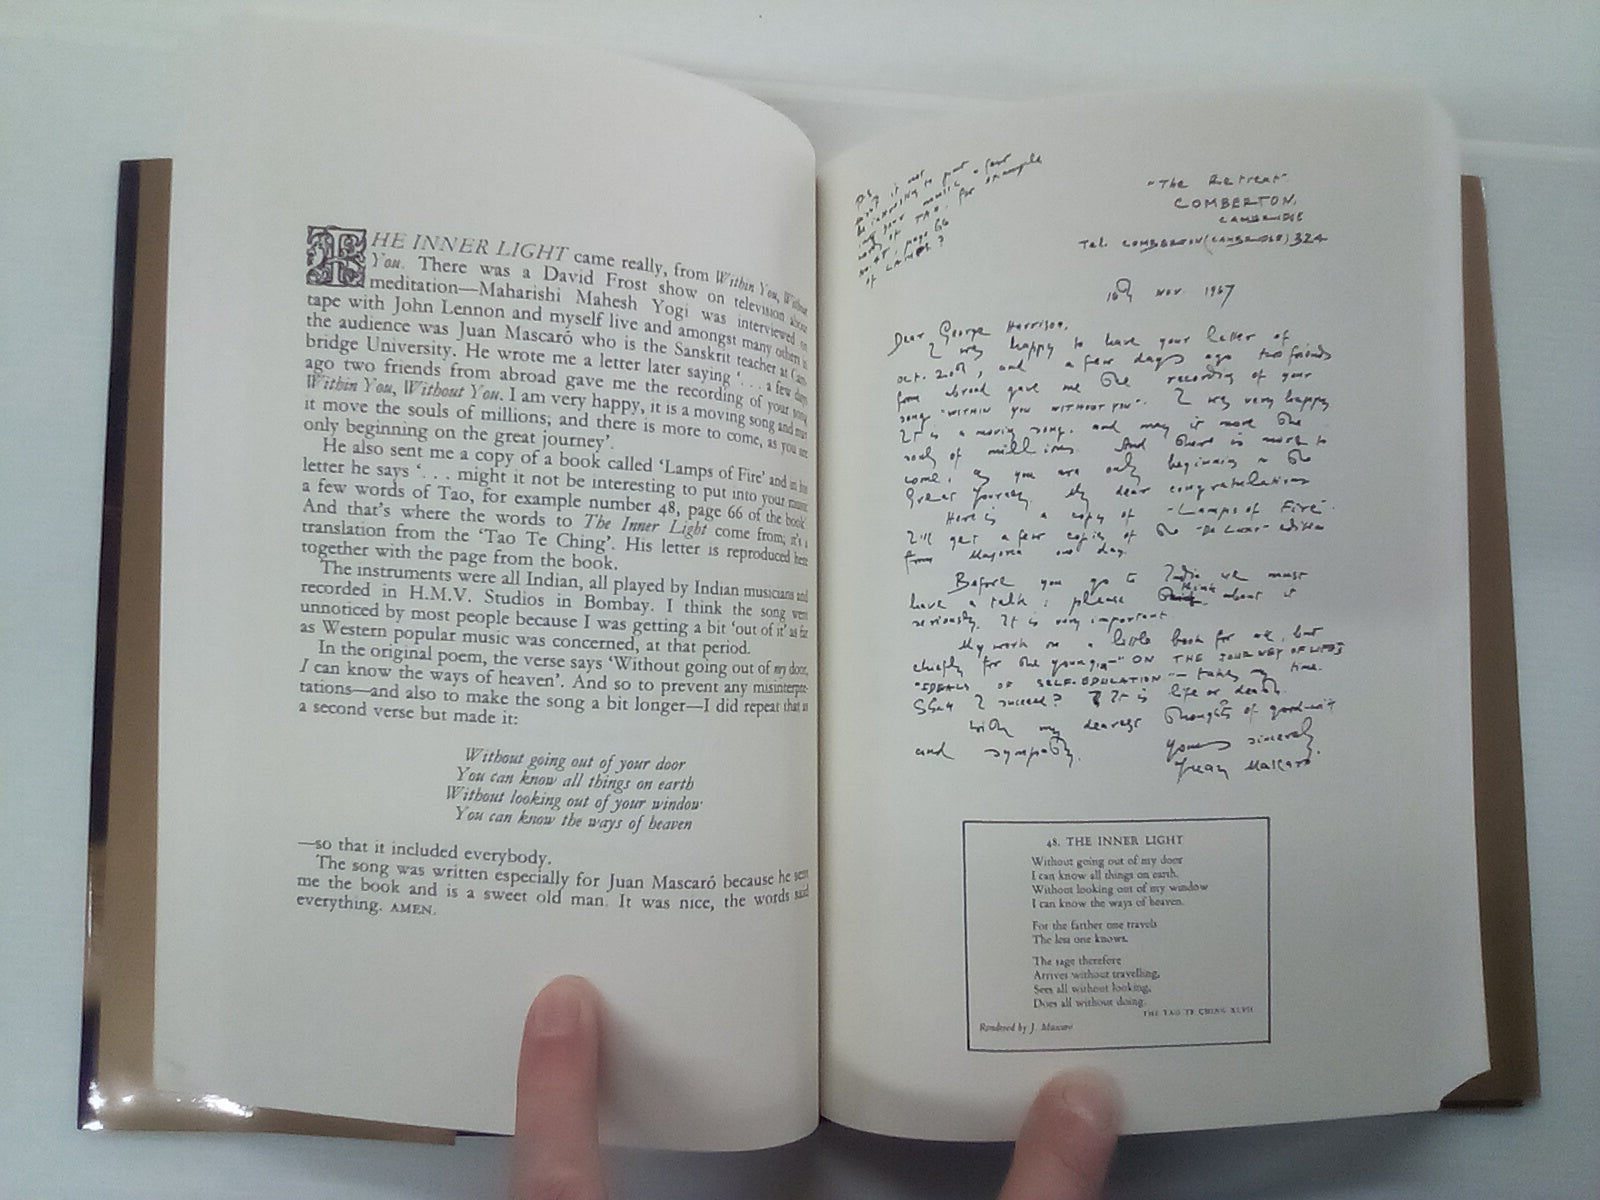 THE INNER LIGHT came really, from Within You, Without
You. There was a David Frost show on television about
meditation—Maharishi Mahesh Yogi was interviewed on
tape with John Lennon and myself live and amongst many others in
the audience was Juan Mascaró who is the Sanskrit teacher at Cam-
bridge University. He wrote me a letter later saying '. . . a few days
ago two friends from abroad gave me the recording of your song
Within You, Without You. I am very happy, it is a moving song and may
it move the souls of millions; and there is more to come, as you are
only beginning on the great journey'.
He also sent me a copy of a book called 'Lamps of Fire' and in his
letter he says '. . . might it not be interesting to put into your music
a few words of Tao, for example number 48, page 66 of the book'
And that's where the words to The Inner Light come from; it's a
translation from the 'Tao Te Ching'. His letter is reproduced here
together with the page from the book.
The instruments were all Indian, all played by Indian musicians and
recorded in H.M.V. Studios in Bombay. I think the song went
unnoticed by most people because I was getting a bit 'out of it' as far
as Western popular music was concerned, at that period.
In the original poem, the verse says 'Without going out of my door,
I can know the ways of heaven'. And so to prevent any misinterpre-
tations—and also to make the song a bit longer—I did repeat that as
a second verse but made it:
Without going out of your door
You can know all things on earth
Without looking out of your window
You can know the ways of heaven
—so that it included everybody.
The song was written especially for Juan Mascaró because he sent
me the book and is a sweet old man. It was nice, the words said
everything. AMEN.
P.S.
it not
be interesting to put
into your music a few
words of TAO, for example
No 48, page 66
of LAMPS?
"The Retreat"
COMBERTON,
CAMBRIDGE
Tel. COMBERTON (CAMBRIDGE) 324
16th Nov. 1967
Dear George Harrison,
I was happy to have your letter of
Oct. 20th, and a few days ago two friends
from abroad gave me the recording of your
song "WITHIN YOU WITHOUT YOU". I was very happy
It is a moving song. and may it move the
souls of millions. And there is more to
come, as you are only beginning on the
Great Journey. My dear congratulations
Here is a copy of "Lamps of Fire".
I'll get a few copies of the "De Luxe" edition
from Majorca one day.
Before you go to India we must
have a talk: please think about it
seriously. It is very important
My work on a little book for all, but
chiefly for the young "ON THE JOURNEY OF LIFE"
"IDEALS OF SELF-EDUCATION" — takes my time.
Shall I succeed? It is life or death.
With my dearest thoughts of good-will
and sympathy.
Yours sincerely,
Juan Mascaró
48. THE INNER LIGHT
Without going out of my door
I can know all things on earth.
Without looking out of my window
I can know the ways of heaven.
For the farther one travels
The less one knows.
The sage therefore
Arrives without travelling,
Sees all without looking,
Does all without doing.
THE TAO TE CHING XLVII
Rendered by J. Mascaró